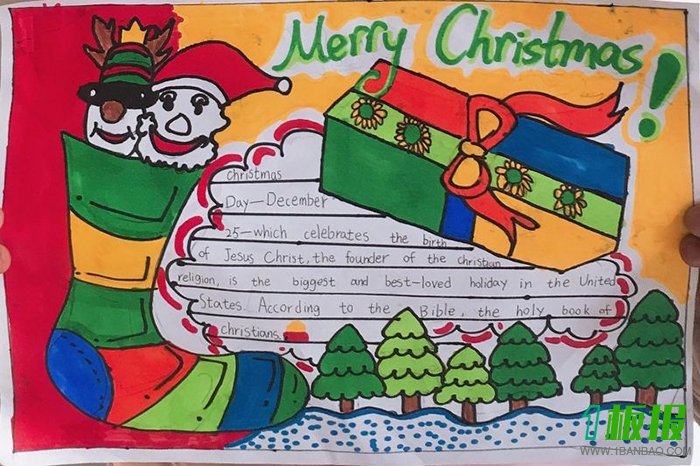 Merry Christmas!
christmas
Day—December
25—which celebrates the birth
of Jesus Christ, the founder of the christian
religion, is the biggest and best-loved holiday in the United
States. According to the Bible, the holy book of
christians,
1板报
WWW.1BANBAO.COM